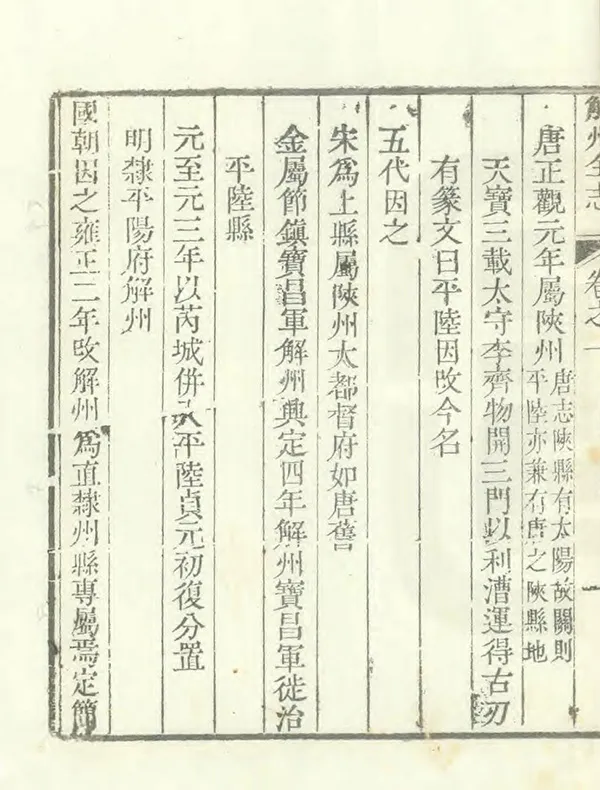 解州全志
卷之一
唐正觀元年屬陜州唐志陜縣有太陽故關則
平陸亦兼有唐之陜縣地
天寶三載太守李齊物開三門以利漕運得古刃
有篆文曰平陸因改今名
五代因之
宋爲上縣屬陜州大都督府如唐舊
金屬節鎮寶昌軍解州興定四年解州寶昌軍徙治
平陸縣
元至元三年以芮城併入平陸貞元初復分置
明隸平陽府解州
國朝因之雍正二年改解州爲直隸州縣專屬焉定簡